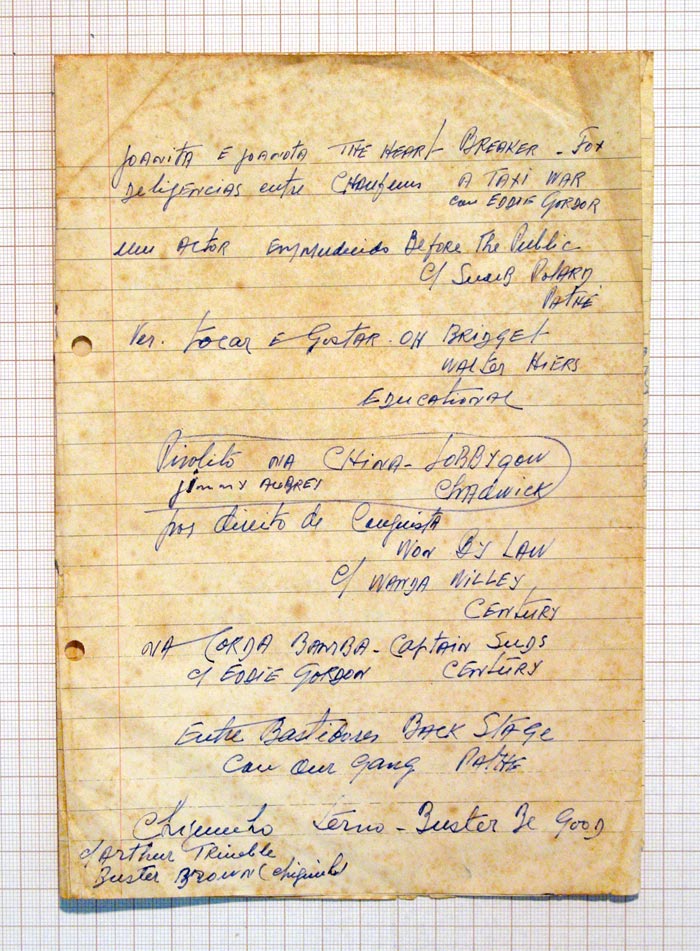 Joanita e Joanota THE HEART BREAKER - Fox
Deligencias entre Chaufeurs A TAXI WAR
com EDDIE GORDON
um ACTOR Emmudecido Before The Public
c/ Snub Polard
PATHÉ
Ver. Tocar e Gostar. OH BRIDGET
WALTER HIERS
EDUCATIONAL
Pirolito NA CHINA - LOBBYGOW
JIMMY AUBREY CHADWICK
por direito de Conquista
WON BY LAW
c/ WANDA WILLEY
CENTURY
NA CORDA BAMBA - CAPTAIN SUDS
c/ EDDIE GORDON CENTURY
Entre Bastidores BACK STAGE
Com Our Gang PATHE
Chiquinho Terno - Buster Be Good
c/ Arthur Trimble
Buster Brown (Chiquinho)